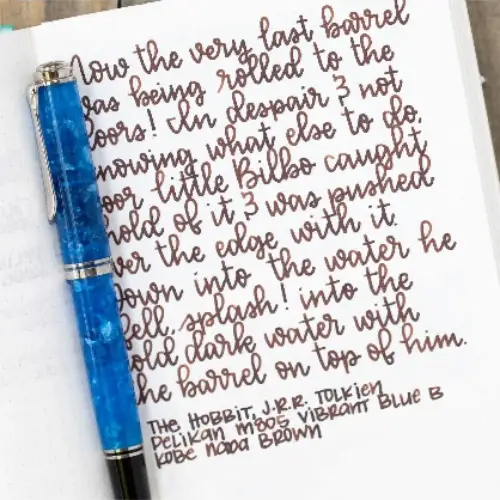 Now the very last barrel
was being rolled to the
doors! In despair & not
knowing what else to do,
poor little Bilbo caught
hold of it & was pushed
over the edge with it.
Down into the water he
fell, splash! into the
cold dark water with
the barrel on top of him.
THE HOBBIT, J.R.R. TOLKIEN
PELIKAN M805 VIBRANT BLUE B
KOBE NADA BROWN